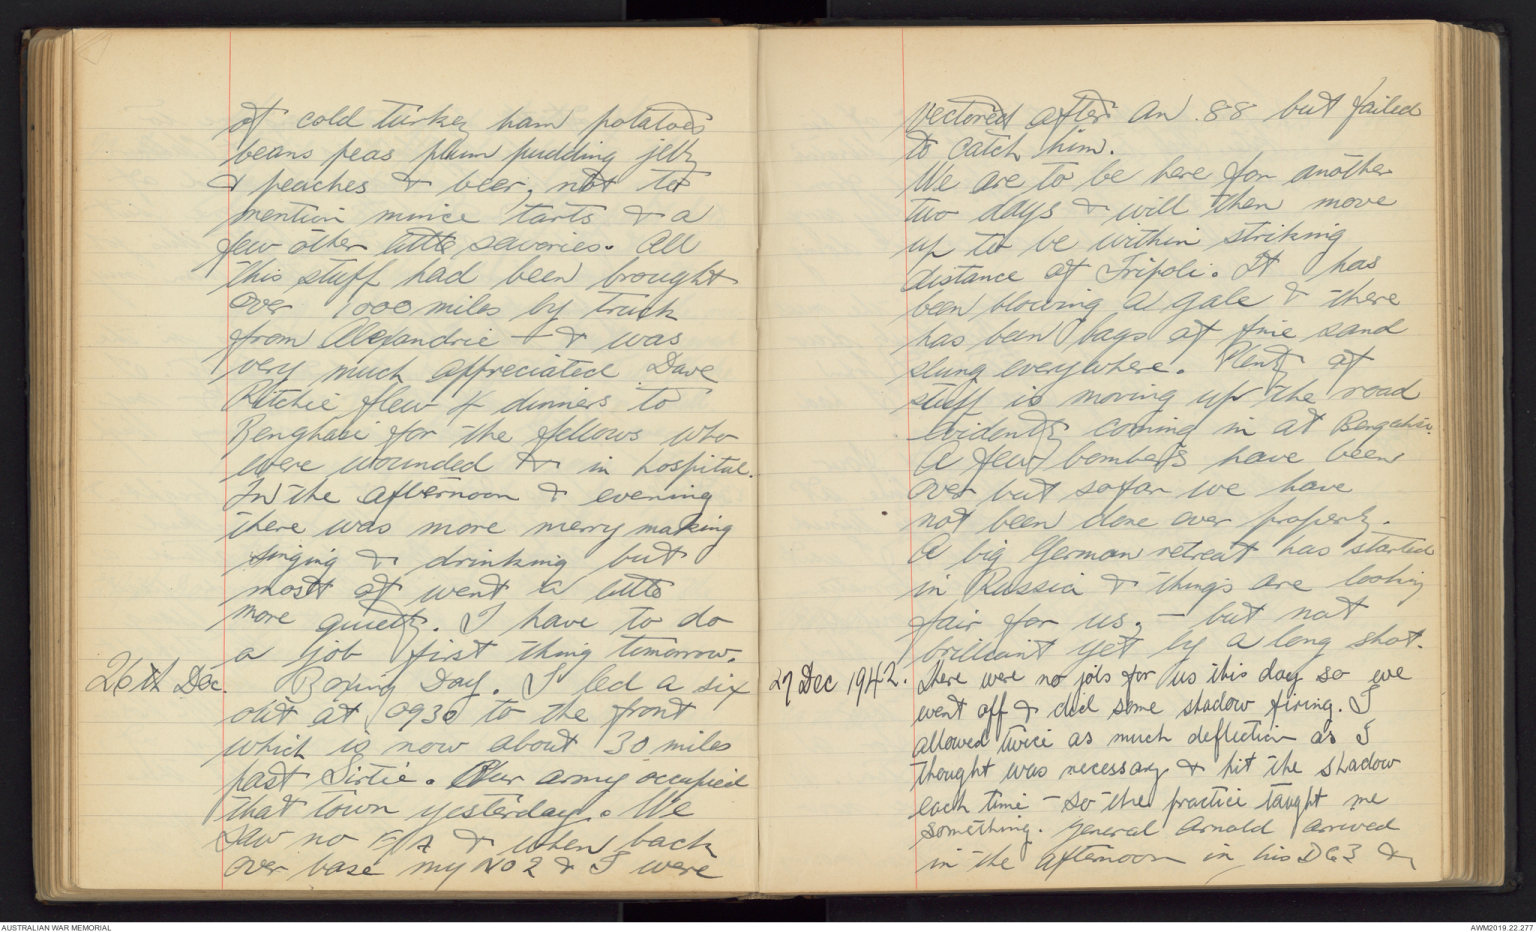 of cold turkey ham potatoes
beans peas plum pudding jelly
& peaches & beer, not to
mention mince tarts & a
few other little savories. All
this stuff had been brought
over 1000 miles by truck
from Alexandria - & was
very much appreciated Dave
Ritchie flew 4 dinners to
Benghasi for the fellows who
were wounded & in hospital.
In the afternoon & evening
there was more merry making
singing & drinking but
most of went a little
more quietly. I have to do
a job first thing tomorrow.
26th Dec. Boxing Day. I led a six
out at 0930 to the front
which is now about 30 miles
past Sirtie. Our army occupied
that town yesterday. We
saw no E/A & when back
over base my NO 2 & I were
vectored after an 88 but failed
to catch him.
We are to be here for another
two days & will then move
up to be within striking
distance of Tripoli. It has
been blowing a gale & there
has been bags of fine sand
slung everywhere. Plenty of
stuff is moving up the road
evidently coming in at Bengahsi.
A few bombers have been
over but so far we have
not been done over properly.
A big German retreat has started
in Russia & things are looking
fair for us. - but not
brilliant yet by a long shot.
27 Dec 1942. There were no jobs for us this day so we
went off & did some shadow firing. I
allowed twice as much deflection as I
thought was necessary & hit the shadow
each time - so the practice taught me
something. General Arnold arrived
in the afternoon in his DC3 &
AUSTRALIAN WAR MEMORIAL
AWM2019.22.277